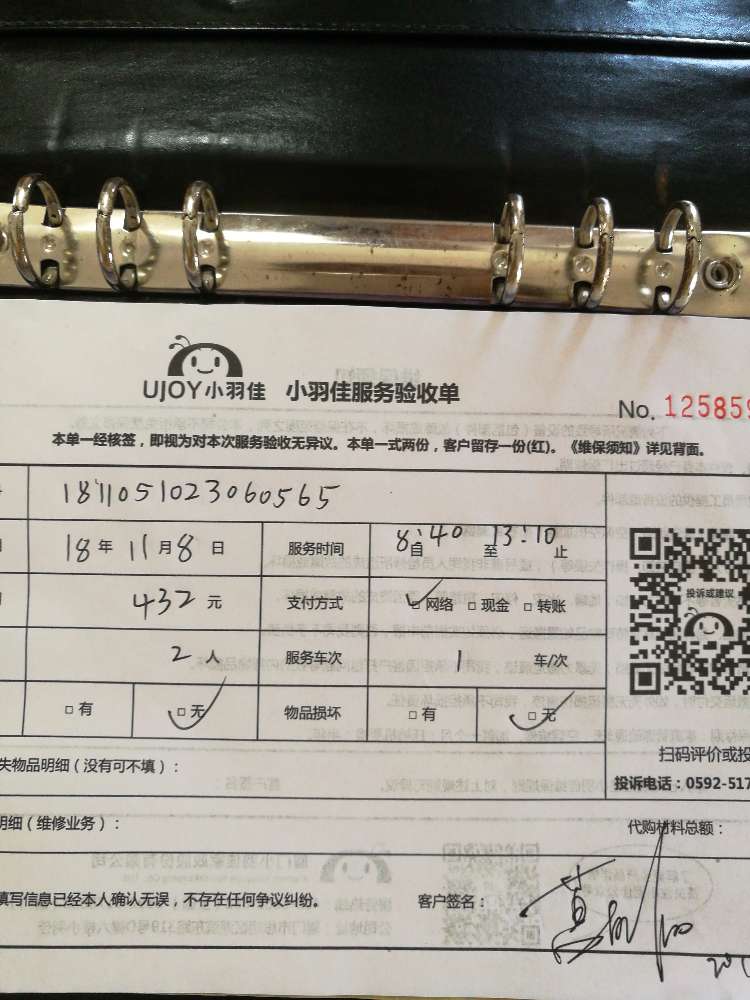 UJOY小羽佳 小羽佳服务验收单
No. 125859
本单一经核签，即视为对本次服务验收无异议。本单一式两份，客户留存一份(红)。《维保须知》详见背面。
1811051023060565
18年 11月8日 服务时间 8:40自 至13:10止
432元 支付方式 □网络 □现金 □转账
2人 服务车次 1 车/次
投诉或建议
□有 □无 物品损坏 □有 □无
扫码评价或投
失物品明细（没有可不填）：
投诉电话：0592-517
明细（维修业务）： 代购材料总额：
填写信息已经本人确认无误，不存在任何争议纠纷。 客户签名：